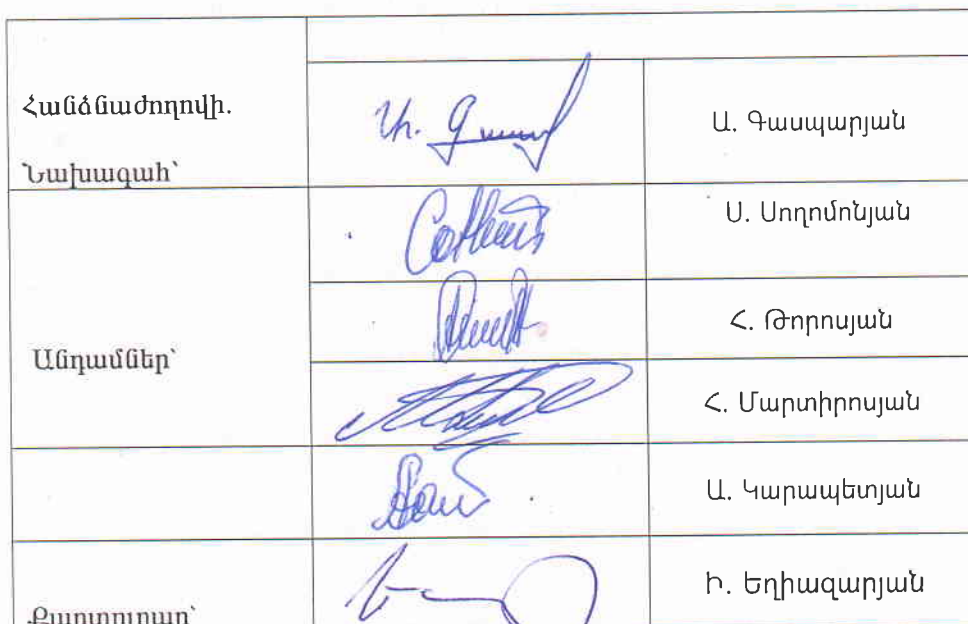 Հանձնաժողովի.
Նախագահ՝
Ա. Գասպարյան
Ս. Սողոմոնյան
Անդամներ՝
Հ. Թորոսյան
Հ. Մարտիրոսյան
Ա. Կարապետյան
Քարտուղար՝
Ի. Եղիազարյան